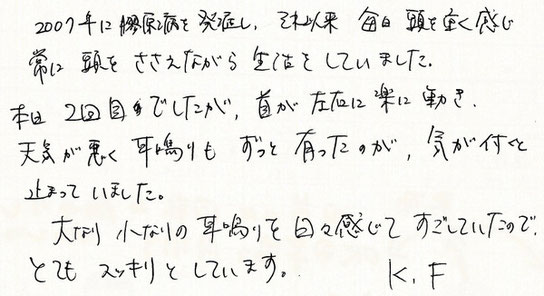 2007年に膠原病を発症し、それ以来 毎日 頭を重く感じ
常に 頭を ささえながら 生活をしていました。
本日 2回目でしたが、首が 左右に 楽に 動き、
天気が悪く 耳鳴りも ずっと 有ったのが、気が付くと
止まっていました。
大なり 小なりの 耳鳴りを 日々感じて すごしていたので、
とても スッキリと しています。 K.F